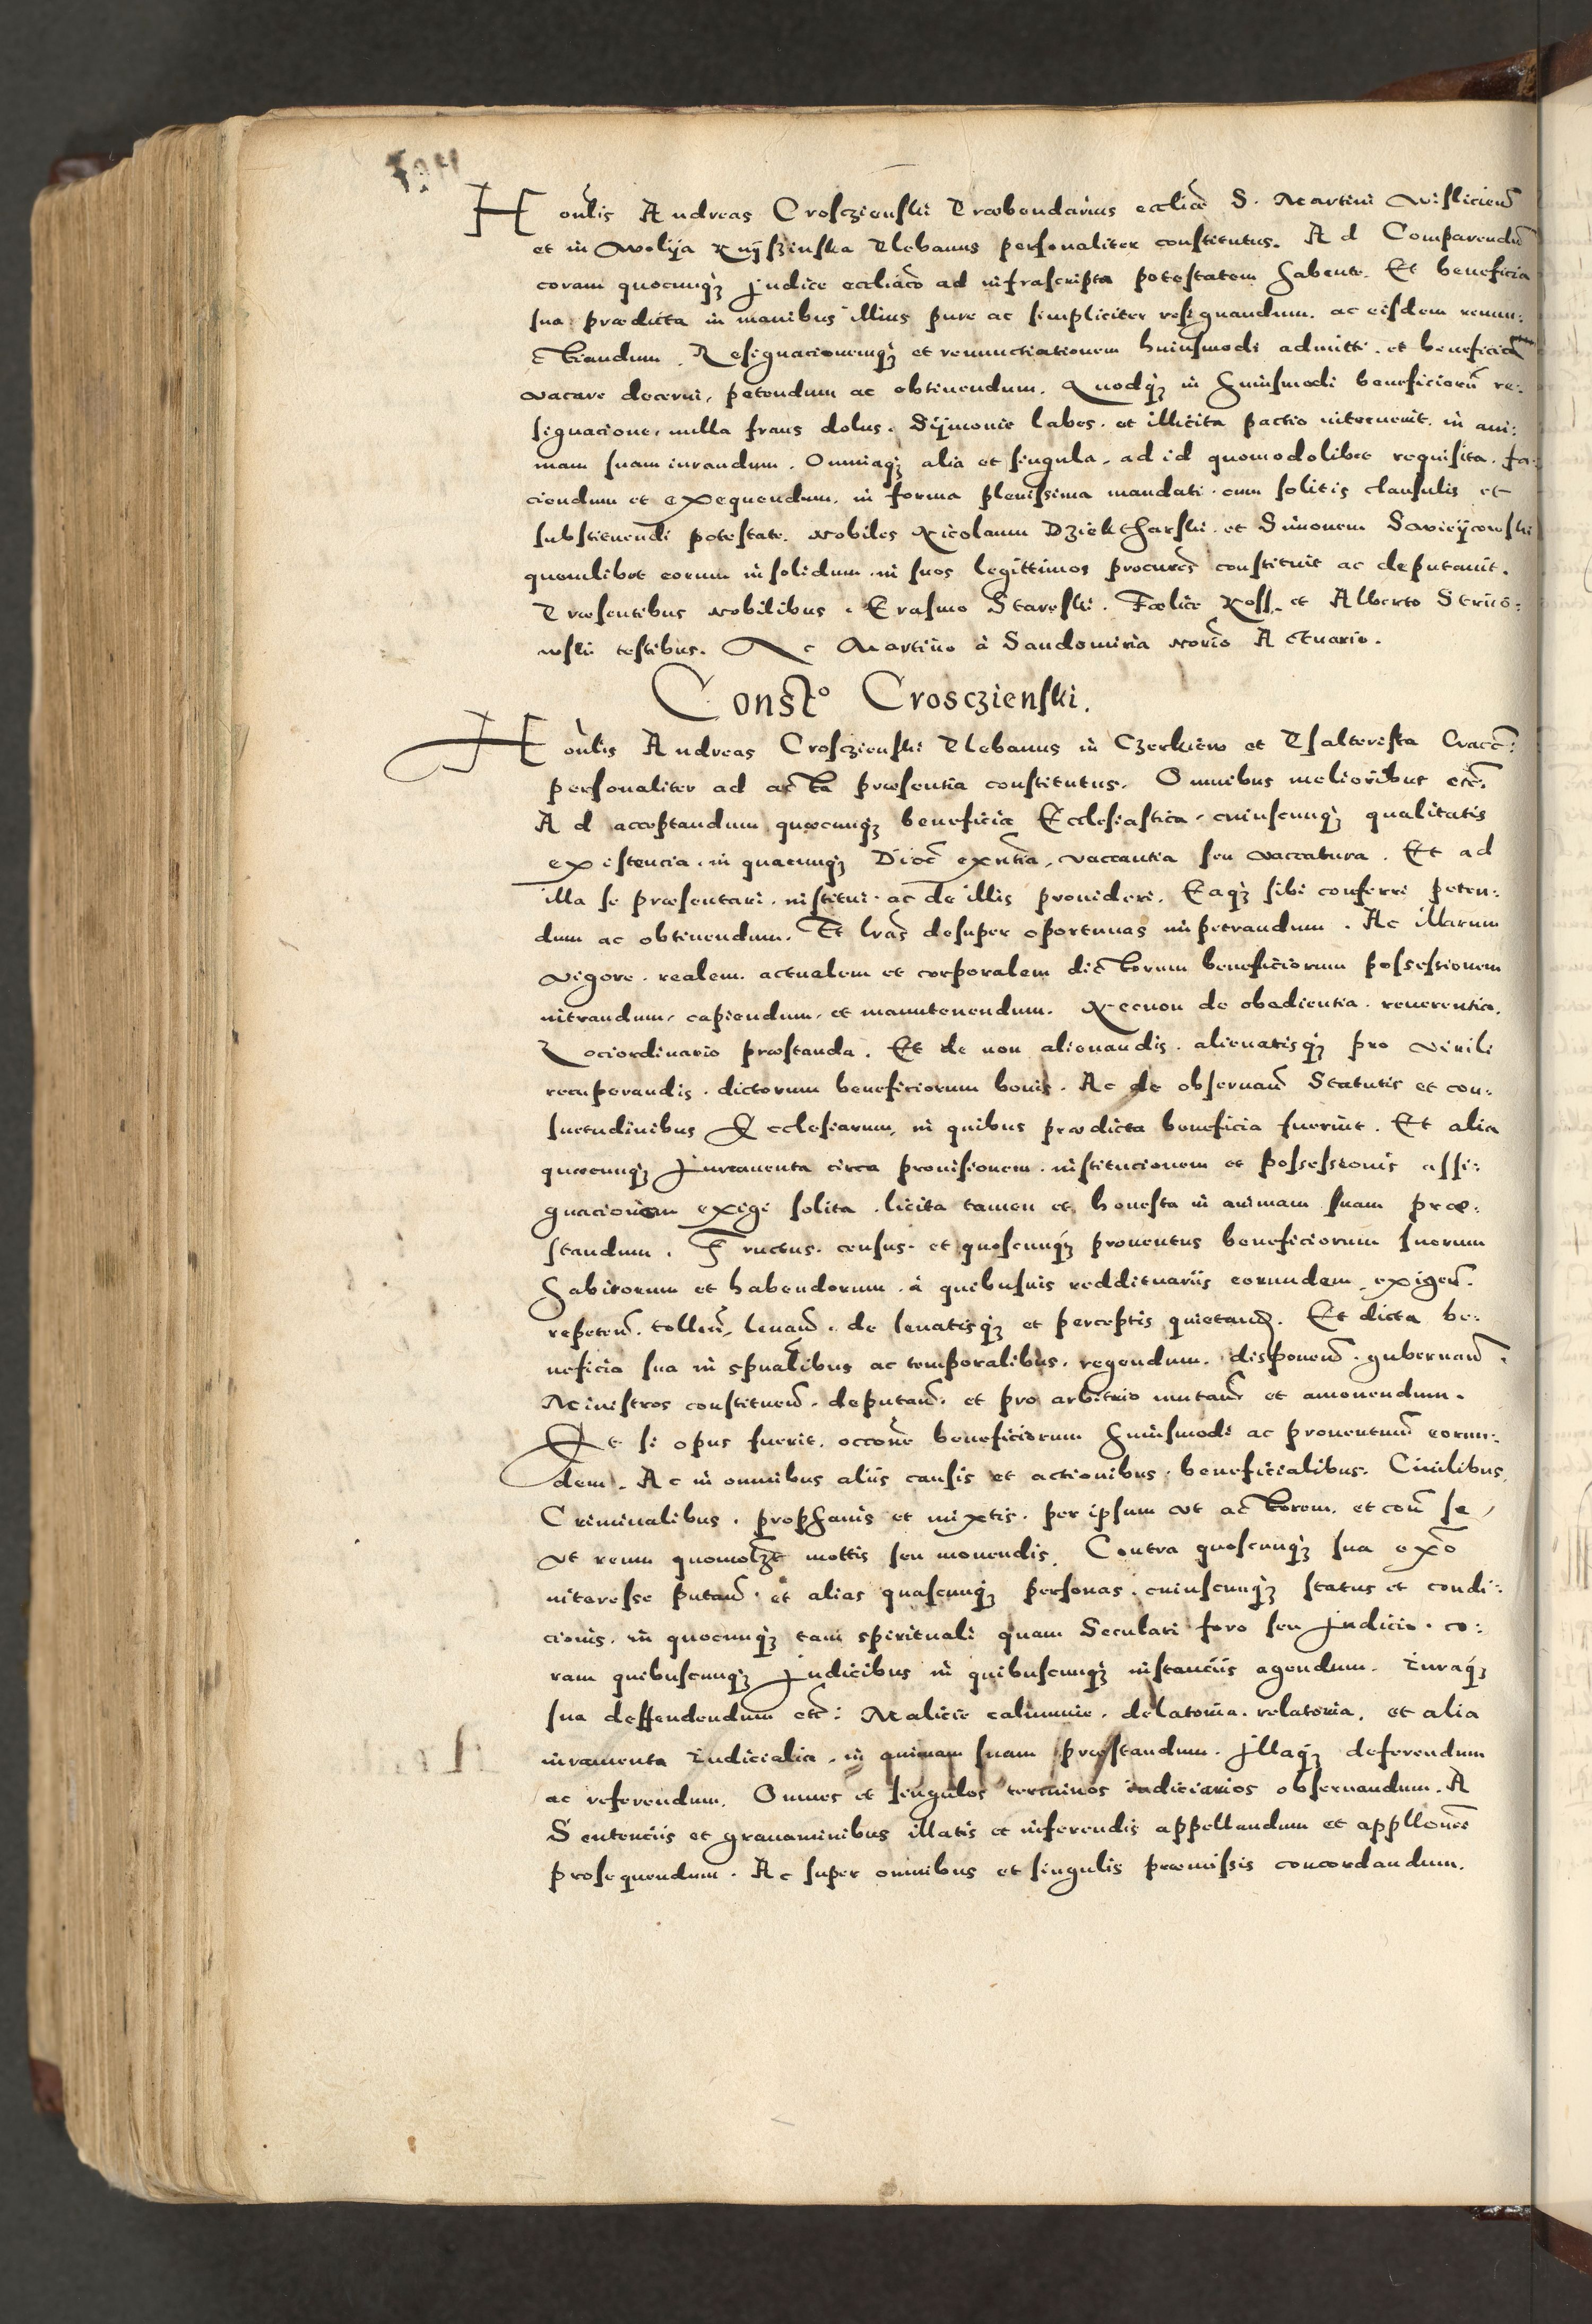 Honlis Andreas Crosczienski Præbendarius ecclíæ S. Martini Wisliciens̃
et in Wolija Knijszinska Plebanus personaliter constitutus. Ad Comparendũ
coram quocunqʒ Judice eccliaco ad infrascripta potestatem habente. Et beneficia
sua prædicta in manibus illius pure ac simpliciter resignandum. ac eisdem renun:
ctiandum. Resignacionemqʒ et renunctiationem huiusmodi admitti. et beneficia
vacare decerni, petendum ac obtinendum. Quodqʒ in huiusmodi beneficiorũ re:
signacione, nulla fraus dolus. Sijmonie labes. et illicita pactio interuenit. in ani:
mam suam iurandum. Omniaqʒ alia et singula, ad id quomodolibet requisita. fa:
ciendum et exequendum. in forma plenissima mandati. cum solitis clausulis et
substituendi potestate. Nobiles Nicolaum Dziekтharski. et Simonem Swieijcowski
quemlibet eorum insolidum. in suos legittimos procures constituit ac deputauit.
Præsentibus Nobilibus. Erasmo Stareski. Fælice Koss. et Alberto Strięo:
wski testibus. Ac Martino à Sandomiria Norio Actuario.
Const.º Crosczienski.
Honlis Andreas Crosczienski Plebanus in Czerkiew et Psalterista Cracc:
personaliter ad acta præsentia constitutus. Omnibus melioribus etc.
Ad acceptandum quæcunqʒ beneficia Ecclesiastica, cuiuscunqʒ qualitatis
existencia. in quacunqʒ Dioc̃ exñtia, vaccantia seu vaccatura. Et ad
illa se præsentari. institui. ac de illis prouideri. Eaqʒ sibi conferri peten:
dum ac obtinendum. Et lras desuper oportunas impetrandum. Ac illarum
vigore. realem. actualem et corporalem dictorum beneficiorum possessionem
intrandum, capiendum, et manutenendum. Necnon de obedientia. reuerentia.
Lociordinario præstanda. Et de non alienandis. alienatisqʒ pro virili
recuperandis. dictorum beneficiorum bonis. Ac de obseruan̄ Statutis et con:
suetudinibus Ecclesiarum, in quibus prædicta beneficia fuerint. Et alia
quæcunqʒ Juramenta circa prouisionem. institucionem et possessionis assi:
gnacionem exigi solita. licita tamen et honesta in animam suam præ:
standum. Fructus. census. et quoscunqʒ prouentus beneficiorum suorum
habitorum et habendorum. à quibusuis reddituariis eorundem. exigen̄.
repeten̄. tollen̄, leuan̄. de leuatisqʒ et perceptis quietand. Et dicta be:
neficia sua in spualibus ac temporalibus. regendum. disponen̄. gubernan̄.
Ministros constituen̄. deputan̄. et pro arbitrio mutan̄ et amouendum.
Et si opus fuerit. occone beneficiorum huiusmodi ac prouentuum eorun:
dem. Ac in omnibus aliis causis et actionibus. beneficialibus. Ciuilibus,
Criminalibus. prophanis et mixtis. per ipsum vt actorem. et con̄ se,
vt reum quomolʒt mottis seu mouendis. Contra quoscunqʒ sua exo
interesse putan̄. et alias quascunqʒ personas. cuiuscunqʒ status et condi:
cionis. in quocunqʒ tam spirituali quam Seculari foro seu Judicio. co:
ram quibuscunqʒ Judicibus in quibuscunqʒ instanciis agendum. Iuraqʒ
sua deffendendum etc: Malicie calumnie. delatoria. relatoria. et alia
iuramenta Iudicialia. in animam suam præstandum. Illaqʒ deferendum
ac referendum. Omnes et singulos terminos iudiciarios obseruandum. A
Sentenciis et grauaminibus illatis et inferendis appellandum et appllones
prosequendum. Ac super omnibus et singulis præmissis concordandum.